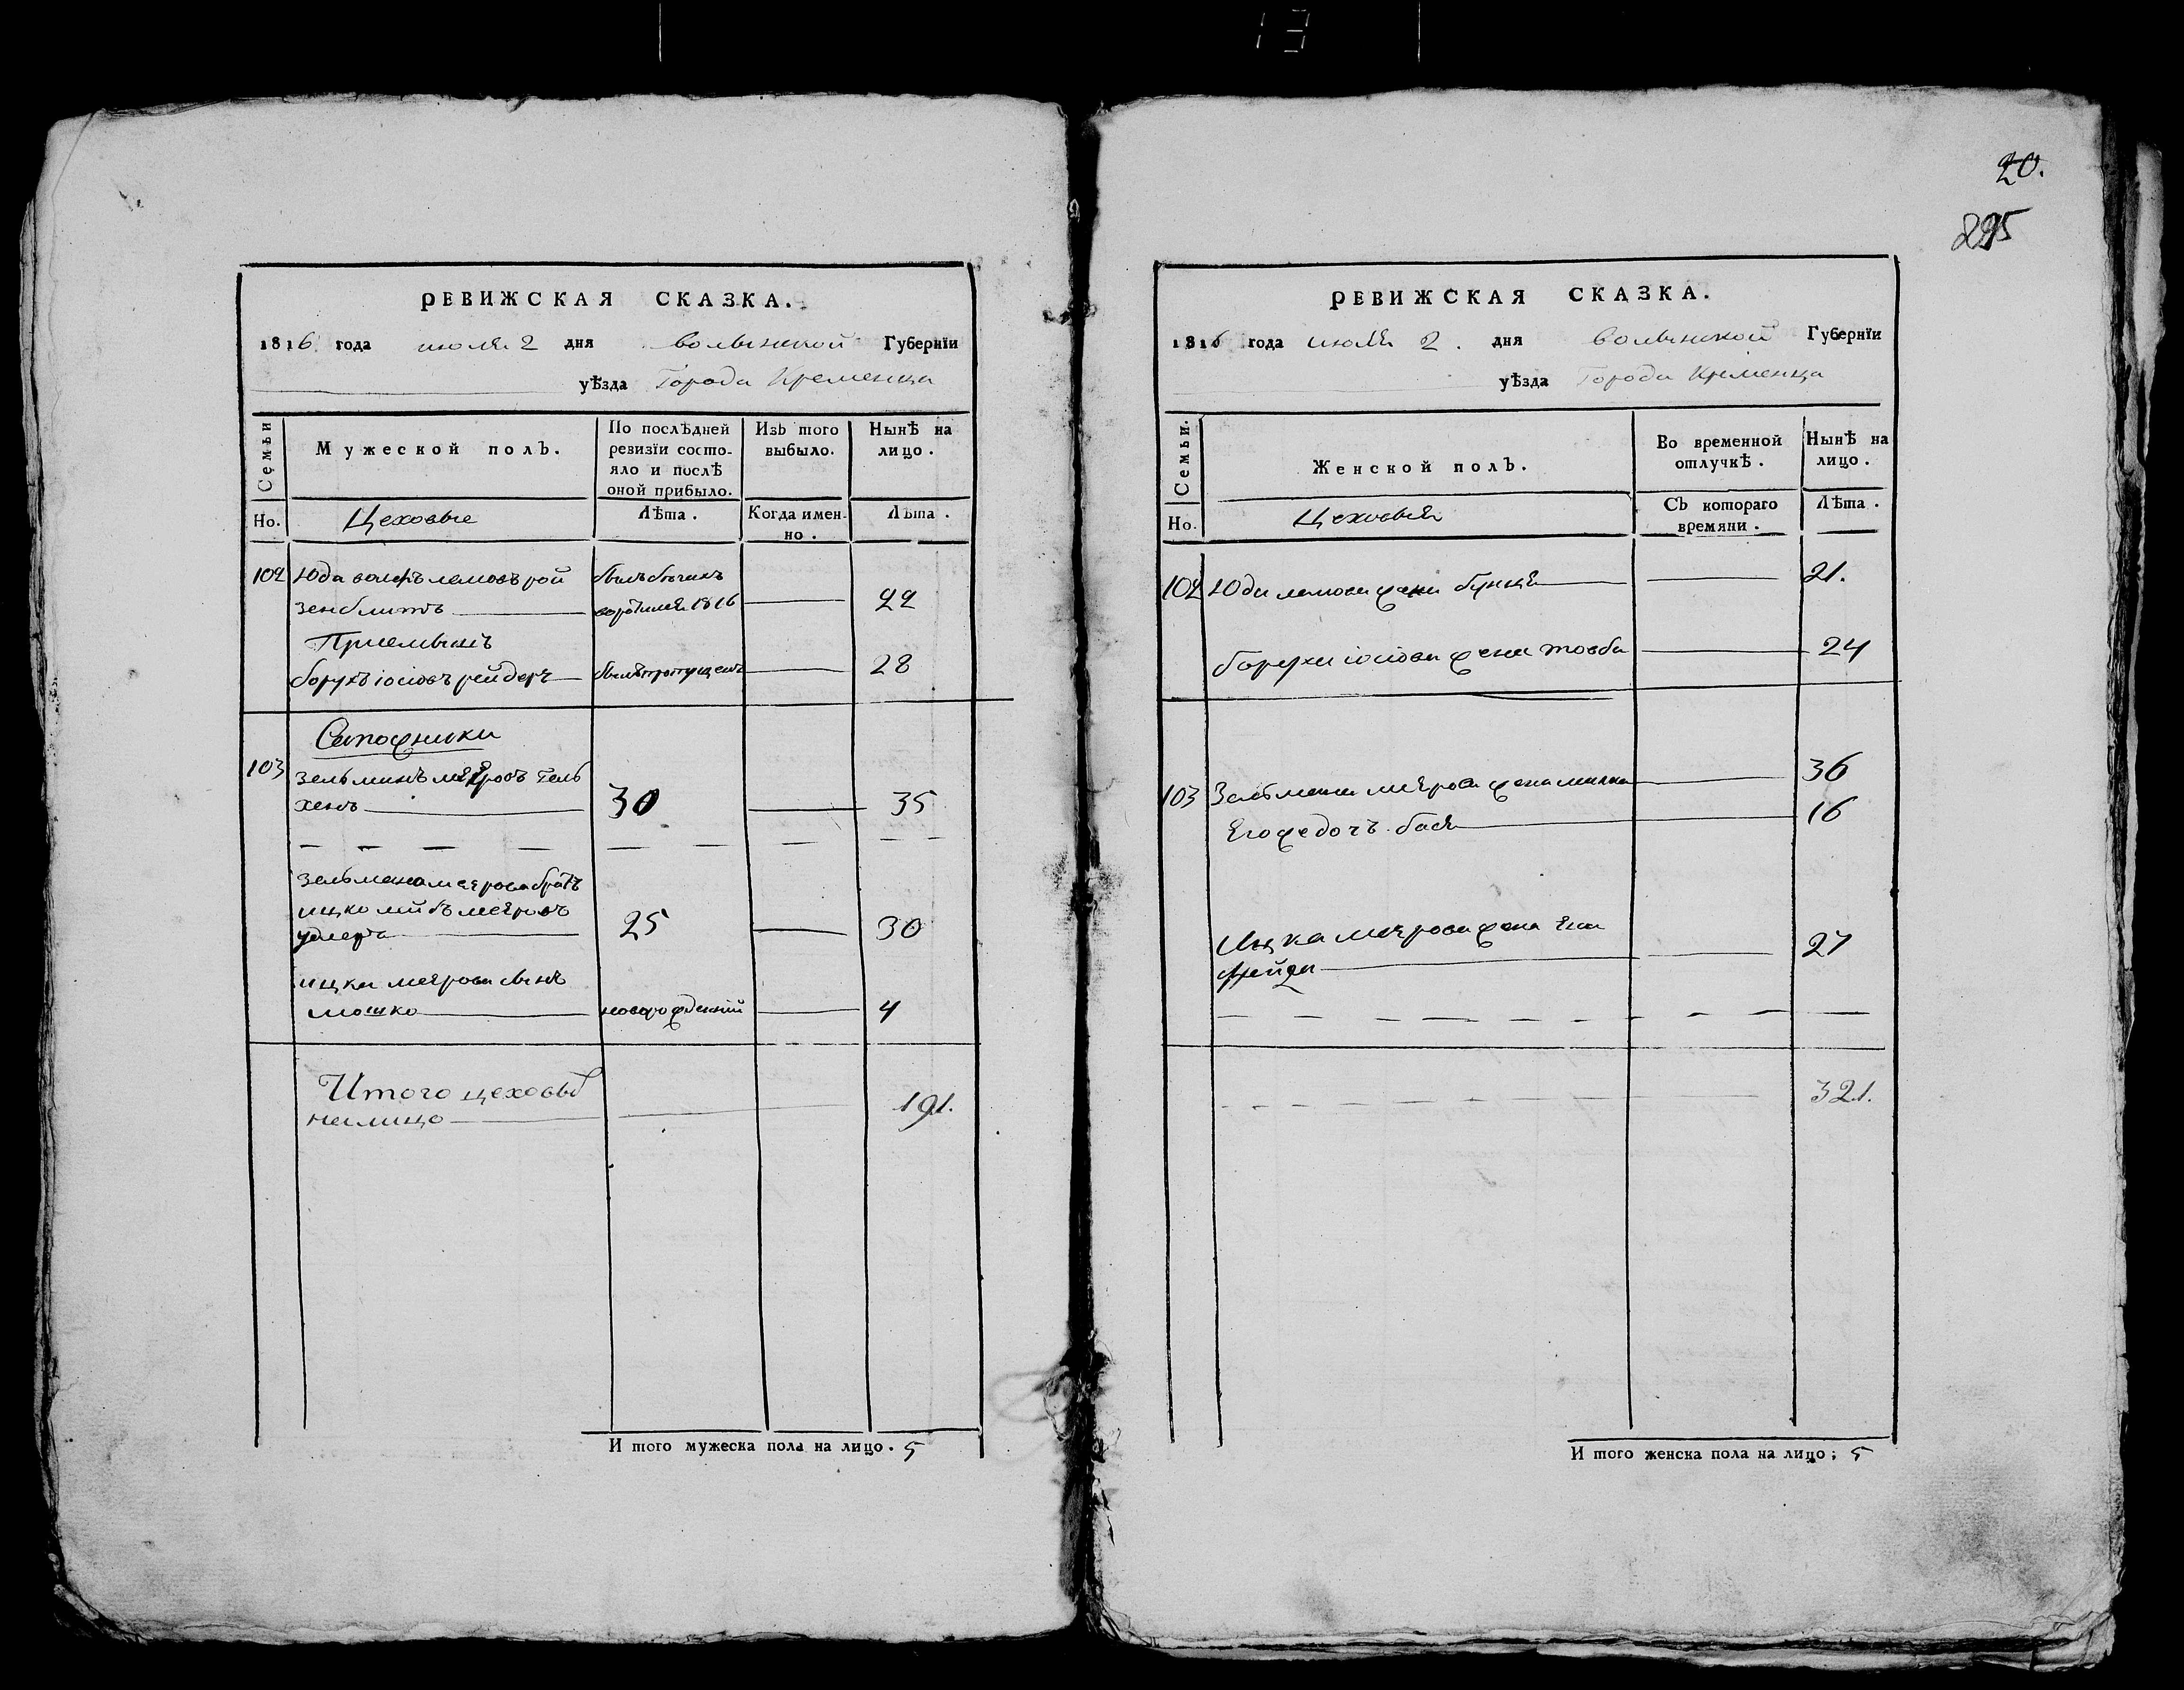 13
20.
295
РЕВИЖСКАЯ СКАЗКА.
1816 года июля 2 дня Волынской Губернїи
уѣзда Города Кременца
Семьи
Мужеской полъ.
По послѣдней ревизїи состояло и послѣ оной прибыло.
Изъ того выбыло.
Нынѣ на лицо.
Но.
Цеховые
Лѣта.
Когда именно.
Лѣта.
102 Юда вольфъ лемовъ рой былъ
зенблитъ 1816 22
Приемышъ
борухъ іосіовъ рейдеръ былъ пропущенъ 28
Сапожники
103
зельманъ мееровъ гель
хенъ 30 35
зельмана меерова братъ
ицко лейбъ мееровъ
25 30
ицка меерова сынъ
мошко новорожденній 4
Итого цеховыхъ
налицо 191.
И того мужеска пола на лицо. 5
РЕВИЖСКАЯ СКАЗКА.
1816 года июля 2. дня Волынской Губернїи
уѣзда Города Кременца
Семьи.
Женской полъ.
Во временной отлучкѣ.
Нынѣ на лицо.
Но.
Цеховыя
Съ котораго времяни.
Лѣта.
102 Юды лемова жена бунця 21.
боруха іосіова жена товба 24
103 Зельмана меерова жена милка 36
Его дочъ бася 16
Ицка меерова жена
фрейда 27
321.
И того женска пола на лицо; 5